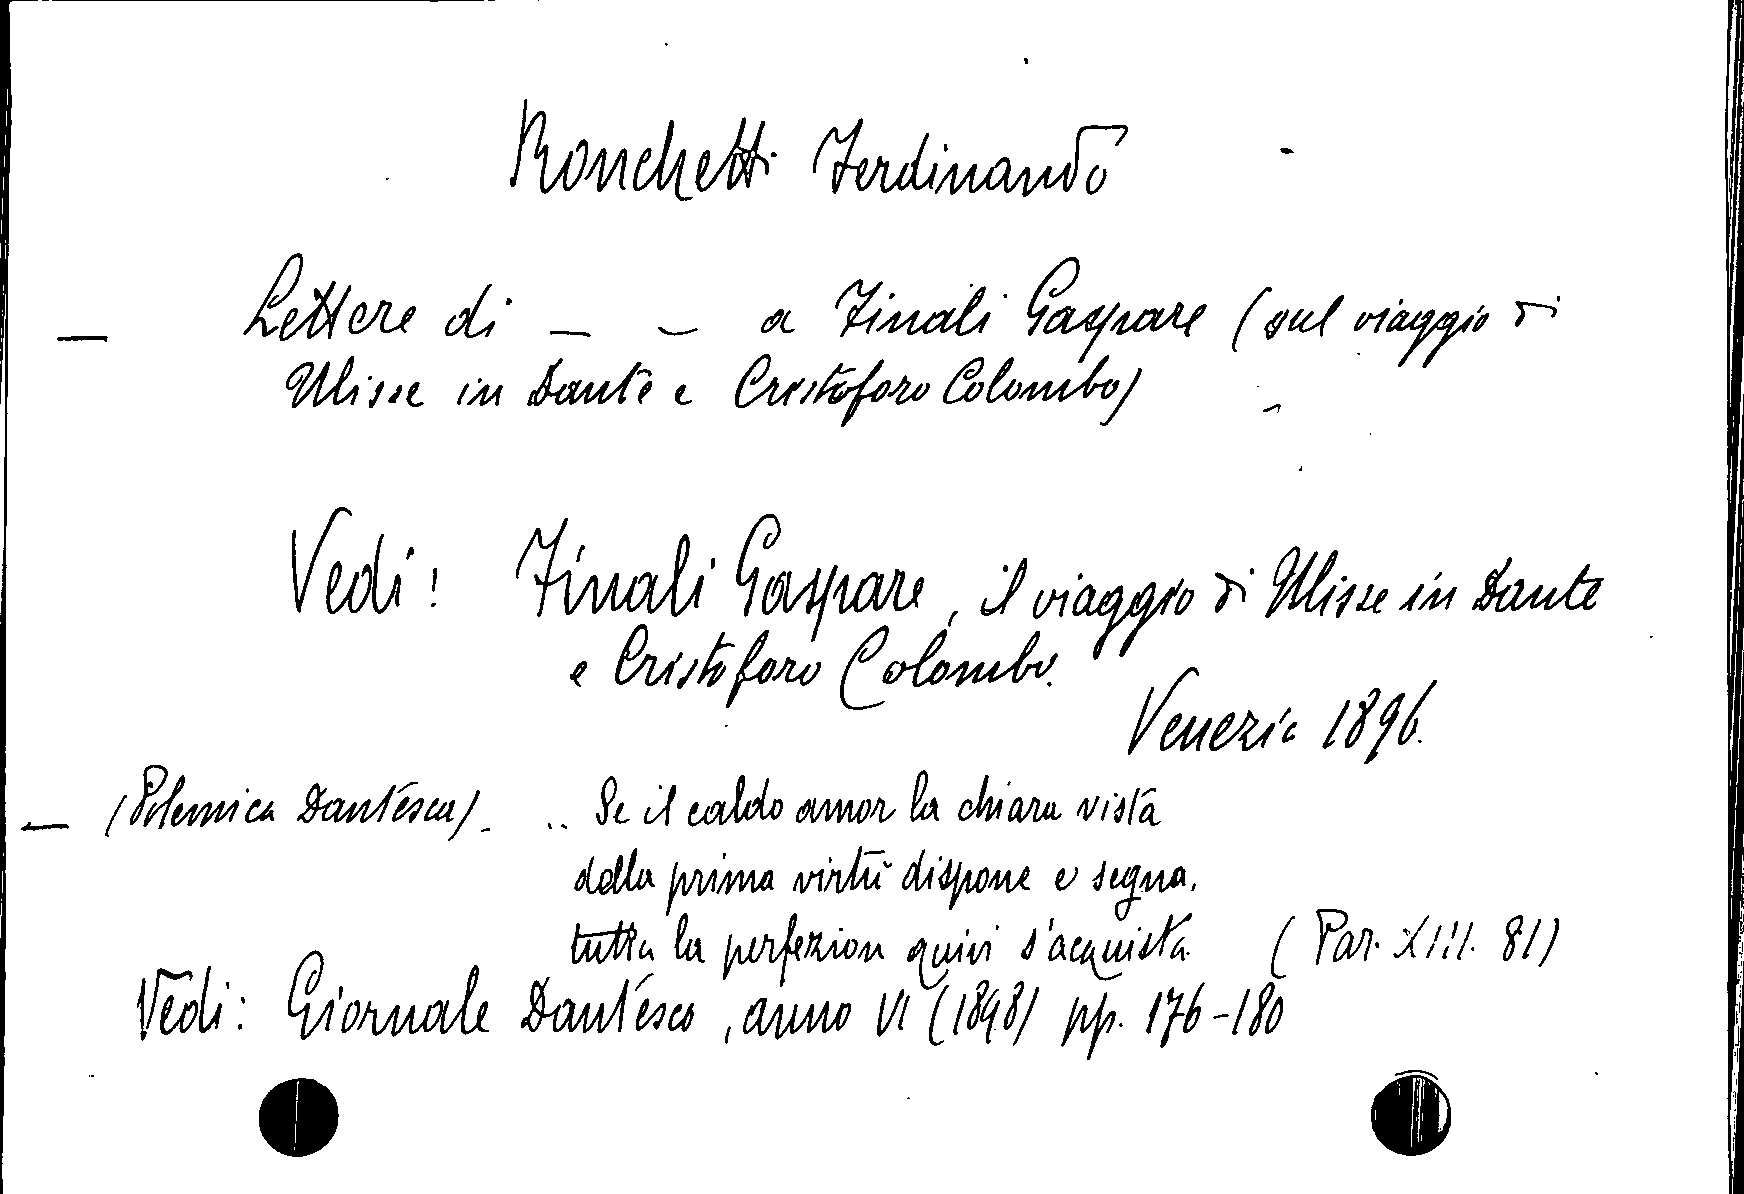 Ronchetti Ferdinando
— Lettere di — — a Finali Gaspare (sul viaggio di
Ulisse in Dante e Cristoforo Colombo)
Vedi: Finali Gaspare, il viaggio di Ulisse in Dante
e Cristoforo Colombo.
Venezia 1896.
— (Polemica Dantesca). .. Se il caldo amor la chiara vista
della prima virtù dispone e segna,
tutta la perfezion quivi s'acquista. (Par. XIII. 81)
Vedi: Giornale Dantesco, anno VI (1898) pp. 176-180